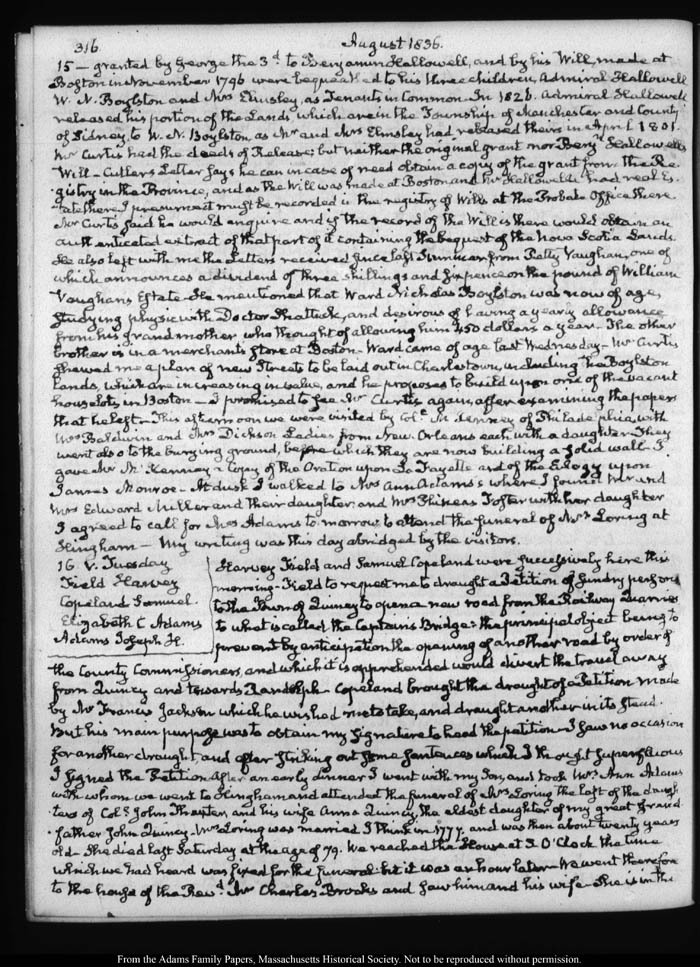 316
August 1836.
15 — granted by George the 3d to Benjamin Hallowell, and by his Will, made at
Boston in November 1796 were bequeathed to his three children, Admiral Hallowell
W. N. Boylston and Mrs Elmsley, as Tenants in Common. In 1826. Admiral Hallowell
released his portion of the Lands which are in the Township of Manchester and County
of Sidney, to W. N. Boylston, as Mr and Mrs Elmsley had released theirs in April 1801.
Mr Curtis had the deeds of Release; but neither the original grant nor Benjn Hallowell's
Will — Cutler's Letter says he can in case of need obtain a copy of the grant from the Re-
gistry in the Province, and as the Will was made at Boston and Mr Hallowell had real Es-
tate there I presume it must be recorded in the registry of Wills at the Probate Office there
Mr Curtis said he would enquire and if the record of the Will is there would obtain an
authenticated extract of that part of it containing the bequest of the Nova Scotia Lands
He also left with me the Letters received since last Summer from Petty Vaughan, one of
which announces a dividend of three shillings and sixpence on the pound of William
Vaughan's Estate. He mentioned that Ward Nicholas Boylston was now of age,
studying physic with Doctor Shattuck, and desirous of having a yearly allowance
from his grandmother who thought of allowing him 450 dollars a year — The other
brother is in a merchants store at Boston — Ward came of age last Wednesday — Mr Curtis
shewed me a plan of new Streets to be laid out in Charlestown, including the Boylston
Lands, which are increasing in value, and he proposes to build upon one of the vacant
house lots, in Boston — I promised to see Mr Curtis again, after examining the papers
that he left — This afternoon we were visited by Coll. M. Kenney of Philadelphia, with
Mrs Baldwin and Mrs Dickson Ladies from New Orleans each with a daughter — They
went also to the burying ground, before which they are now building a solid wall — I
gave Mr M. Kenney a Copy of the Oration upon La Fayette and of the Eulogy upon
James Monroe — At dusk I walked to Mrs Ann Adams's where I found her and
Mrs Edward Miller and their daughter; and Mrs Phineas Foster with her daughter
I agreed to call for Mrs Adams to-morrow to attend the funeral of Mrs Loring at
Hingham — My writing was this day abridged by the visitors.
16 V. Tuesday
Field Harvey
Copeland Samuel.
Elizabeth C Adams
Adams Joseph H.
Harvey Field and Samuel Copeland were successively here this
morning — Field to request me to draught a Petition of sundry persons
to the Town of Quincy to open a new road from the Railway Quarries
to what is called the Captain's Bridge: the principal object being to
prevent by anticipation the opening of another road by order of
the County Commissioners, and which it is apprehended would divert the travel away
from Quincy and towards Randolph — Copeland brought the draught of a Petition made
by Mr Francis Jackson which he wished me to take, and draught another in its stead.
But his main purpose was to obtain my signature to head the petition — I saw no occasion
for another draught, and after striking out some sentences which I thought superfluous
I signed the Petition. After an early dinner I went with my Son, and took Mrs Ann Adams
with whom we went to Hingham and attended the funeral of Mrs Loring the last of the daugh-
ters of Coll. John Thaxter, and his wife Anna Quincy, the eldest daughter of my great grand-
father John Quincy — Mrs Loring was married I think in 1777. and was then about twenty years
old — She died last Saturday at the age of 79. We reached the House at 2 O'Clock the time
which we had heard was fixed for the funeral: but it was an hour later — We went therefore
to the house of the Revd. Mr Charles Brooks and saw him and his wife — She is in the
From the Adams Family Papers, Massachusetts Historical Society. Not to be reproduced without permission.